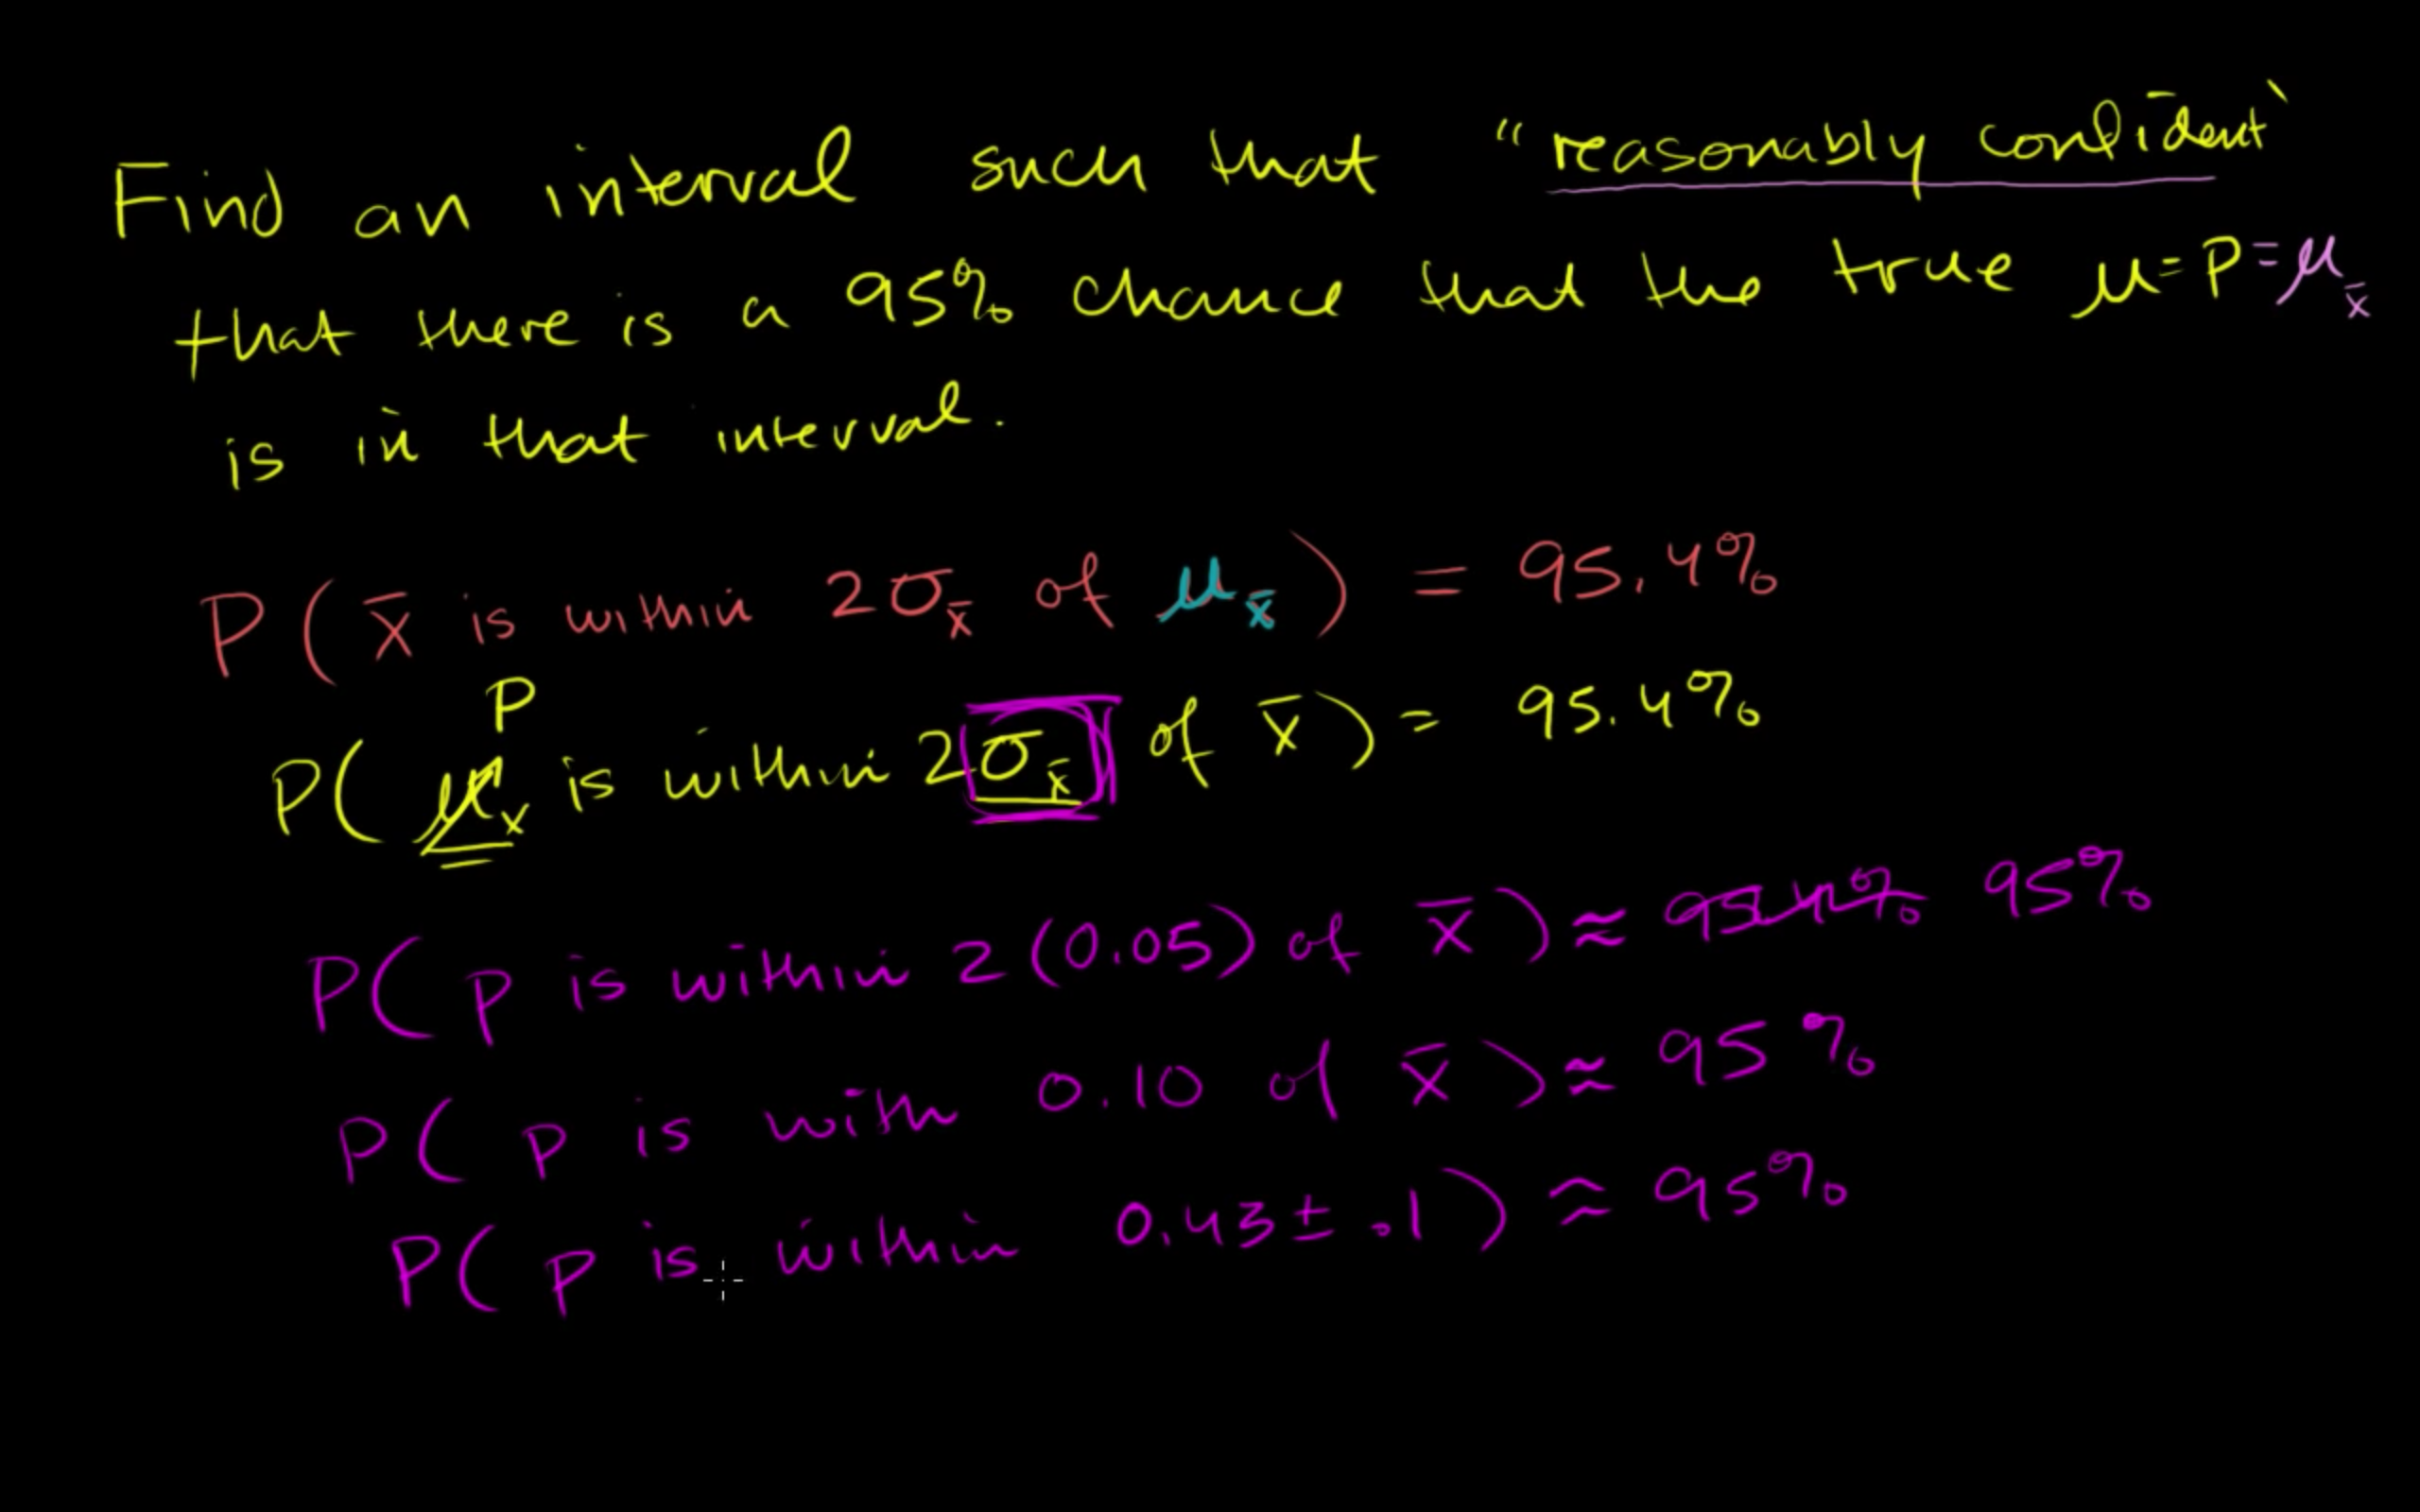 Find an interval such that "reasonably confident"
that there is a 95% chance that the true μ = P = μ_x̄
is in that interval.
P( x̄ is within 2σ_x̄ of μ_x̄ ) = 95.4%
P
P( μ_x is within 2σ_x̄ of x̄ ) = 95.4%
P( p is within 2(0.05) of x̄ ) ≈ 95.4% 95%
P( p is with 0.10 of x̄ ) ≈ 95%
P( p is within 0.43 ± .1 ) ≈ 95%